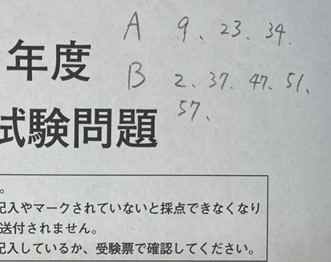 A 9、23、34.
1年度
B 2、37、47、51、
57、
試験問題
。
記入やマークされていないと採点できなくなり
送付されません。
記入しているか、受験票で確認してください。